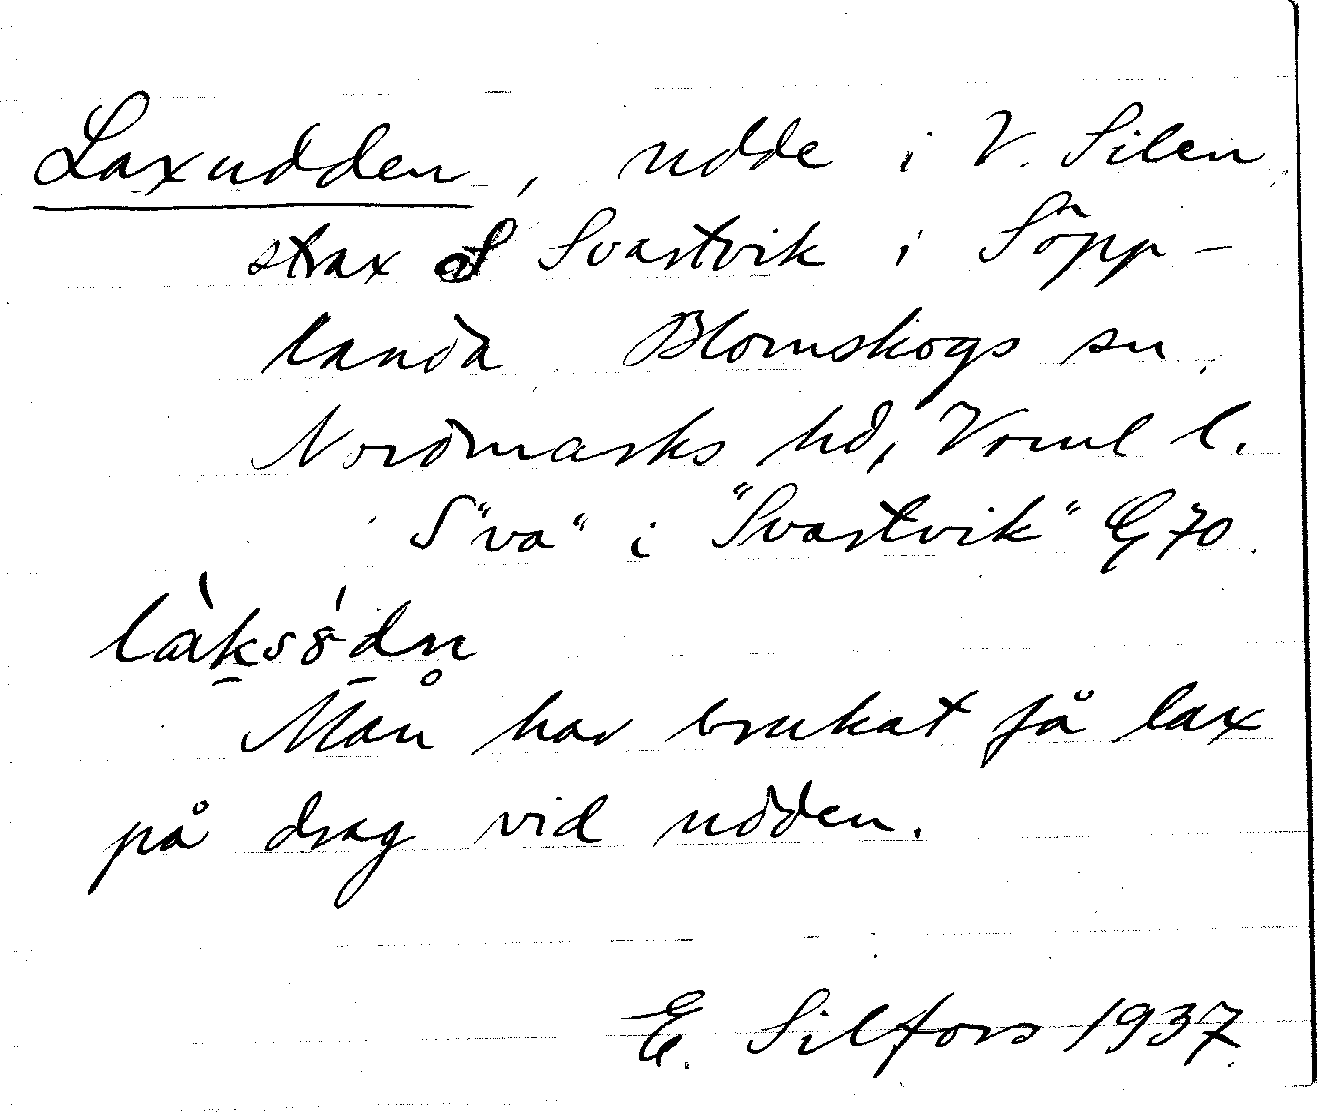 Laxudden, udde i V. Silen
strax S Svastvik i Söpp-
landa Blomskogs sn,
Nordmarks hd, Vrml l.
S "va" i "Svastvik" G 70
Man har brukat få lax
på drag vid udden.
E. Silfors 1937.